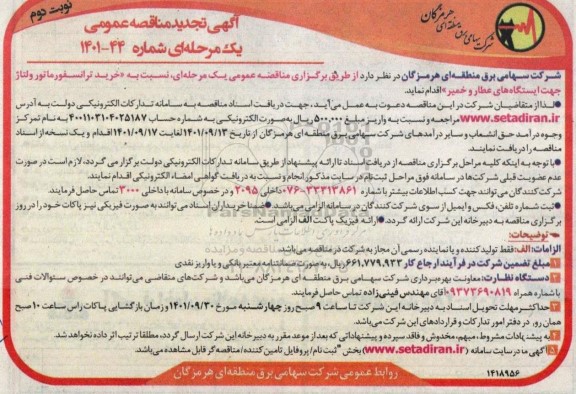 نوبت دوم
آگهی تجدید مناقصه عمومی
یک مرحله‌ای شماره ۴۴-۱۴۰۱
شرکت سهامی برق منطقه‌ای هرمزگان
شرکت سهامی برق منطقه‌ای هرمزگان در نظر دارد از طریق برگزاری مناقصه عمومی یک مرحله‌ای، نسبت به «خرید ترانسفورماتور ولتاژ
جهت ایستگاه‌های عطار و خمیر» اقدام نماید.
لذا از متقاضیان شرکت در این مناقصه دعوت به عمل می‌آید، جهت دریافت اسناد مناقصه به سامانه تدارکات الکترونیکی دولت به آدرس
www.setadiran.ir مراجعه و نسبت به واریز مبلغ ۵۰۰,۰۰۰ ریال به صورت الکترونیکی به شماره حساب ۴۰۰۱۱۰۳۱۰۴۰۲۵۱۸۷ به نام تمرکز
وجوه درآمد حق انشعاب و سایر درآمدهای شرکت سهامی برق منطقه ای هرمزگان از تاریخ ۱۴۰۱/۰۹/۱۳ لغایت ۱۴۰۱/۰۹/۱۷ اقدام و یک نسخه از اسناد
مناقصه را دریافت نمایند.
با توجه به اینکه کلیه مراحل برگزاری مناقصه از دریافت اسناد تا ارائه پیشنهاد از طریق سامانه تدارکات الکترونیکی دولت برگزار می گردد، لازم است در صورت
عدم عضویت قبلی شرکت‌ها در سامانه فوق مراحل ثبت‌نام در سایت مذکور انجام و نسبت به دریافت گواهی امضاء الکترونیکی اقدام نمایند.
شرکت کنندگان می‌توانند جهت کسب اطلاعات بیشتر با شماره ۳۳۳۱۳۸۶۱-۰۷۶ داخلی ۲۰۹۵ و در خصوص سامانه با داخلی ۳۰۰۰ تماس حاصل فرمایند.
ثبت شماره تلفن، فکس و ایمیل از سوی شرکت کنندگان در سامانه الزامی می‌باشد. ضمنا خریداران اسناد می‌توانند به صورت فیزیکی نیز پاکات خود را در روز
برگزاری مناقصه به دبیرخانه این شرکت ارائه گردد. ارائه فیزیک پاکت الف الزامی است.
توضیحات:
الزامات: الف: فقط تولید کننده و یا نماینده رسمی آن مجاز به شرکت در مناقصه می باشد.
۱ مبلغ تضمین شرکت در فرآیند ارجاع کار ۶۶۱,۷۷۹,۹۳۳ ریال، به صورت ضمانتنامه معتبر بانکی و یا واریز نقدی
۲ دستگاه نظارت: معاونت بهره‌برداری شرکت سهامی برق منطقه ای هرمزگان می‌باشد و شرکت‌های متقاضی می‌توانند در خصوص سئوالات فنی
با شماره همراه ۰۹۳۷۳۶۹۰۸۱۹ آقای مهندس فینی‌زاده تماس حاصل فرمایند.
۳ حداکثر مهلت تحویل اسناد به دبیرخانه این شرکت تا ساعت ۹ صبح روز چهارشنبه مورخ ۱۴۰۱/۰۹/۳۰ و زمان بازگشایی پاکات راس ساعت ۱۰ صبح
همان روز، در دفتر امور تدارکات و قراردادهای این شرکت می‌باشد.
۴ به پیشنهادات مشروط، مبهم، مخدوش و فاقد سپرده و پیشنهاداتی که بعد از موعد مقرر به دبیرخانه این شرکت ارسال گردد، مطلقا ترتیب اثر داده نخواهد شد.
۵ آگهی ها در سایت سامانه (www.setadiran.ir) بخش "ثبت نام / پروفایل تامین کننده / مناقصه گر قابل مشاهده می‌باشد.
۱۴۱۸۹۵۶
روابط عمومی شرکت سهامی برق منطقه‌ای هرمزگان